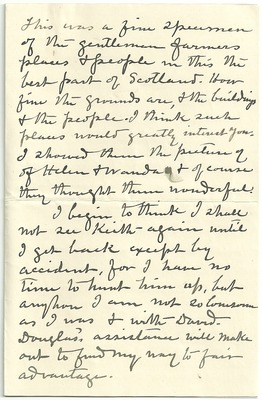 This was a fine specimen
of the gentlemen farmers
places & people in this the
best part of Scotland. How
fine the grounds are, & the buildings
& the people. I think such
places would greatly interest you.
I showed them the picture of
of Helen & Wanda & of course
they thought them wonderful.
I begin to think I shall
not see Keith again until
I get back except by
accident, for I have no
time to hunt him up, but
anyhow I am not so lonesome
as I was & with David
Douglas's assistance will make
out to find my way to fair
advantage.